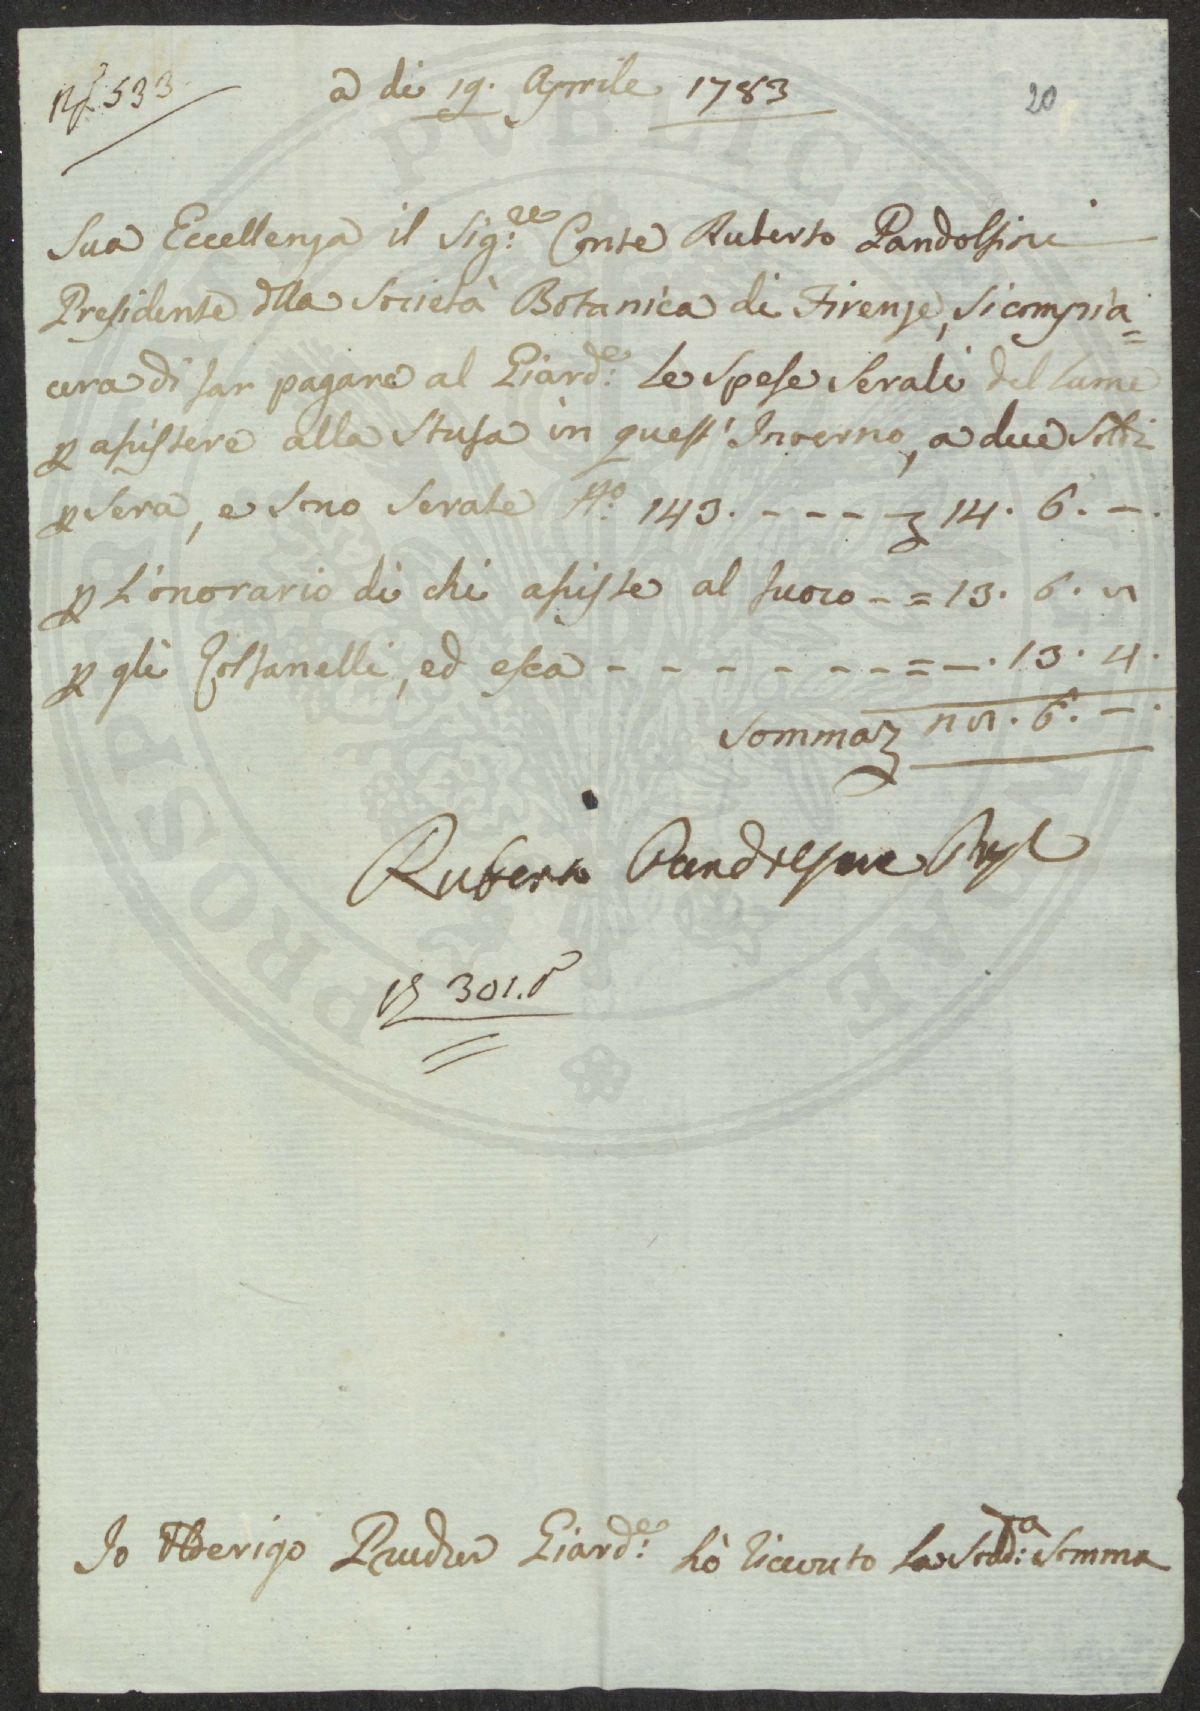 N.° 533.
a di 19. Aprile 1783
20
Sua Eccellenza il Sig:re Conte Ruberto Pandolfini
Presidente dlla Società Botanica di Firenze, si compia=
cera di far pagare al Giard:e Le spese Serali del Lume
p assistere alla Stufa in quest' Inverno, a due Soldi
p sera, e sono serate N:o 143. - - - - 14. 6. -.
p L'onorario di chi assiste al fuoco - = 13. 6. 8
p gli Zolfanelli, ed esca - - - - - - - = -. 13. 4.
Somma 28. 6. -.
Ruberto Pandolfini
301.
PUBLICAE
PROSPERITATI
Io Underigo Pruder Giard:e hò riceuto La Sudd:a Somma